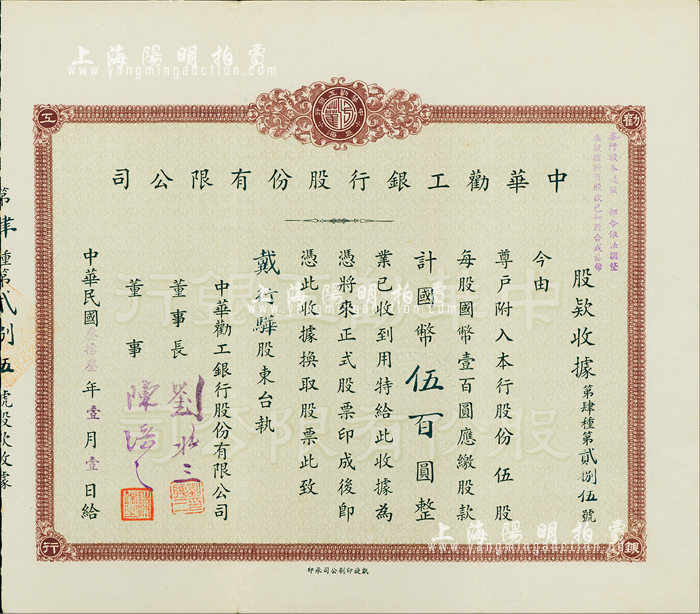 上海陽明拍賣
www.yangmingauction.com
勸
工
銀
行
中華勸工銀行股份有限公司
股款收據 第肆種第貳捌伍號
今由
尊戶附入本行股份伍股
每股國幣壹百圓應繳股款
計國幣伍百圓整
業已收到用特給此收據為
憑將來正式股票印成後即
憑此收據換取股票此致
戴行驊股東台執
中華勸工銀行股份有限公司
董事長 劉
董事 陳
中華民國叁拾叁年壹月壹日給
第肆種第貳捌伍號股款收據
凱旋印刷公司承印
上海陽明拍賣
www.yangmingauction.com
上海陽明拍賣
www.yangmingauction.com